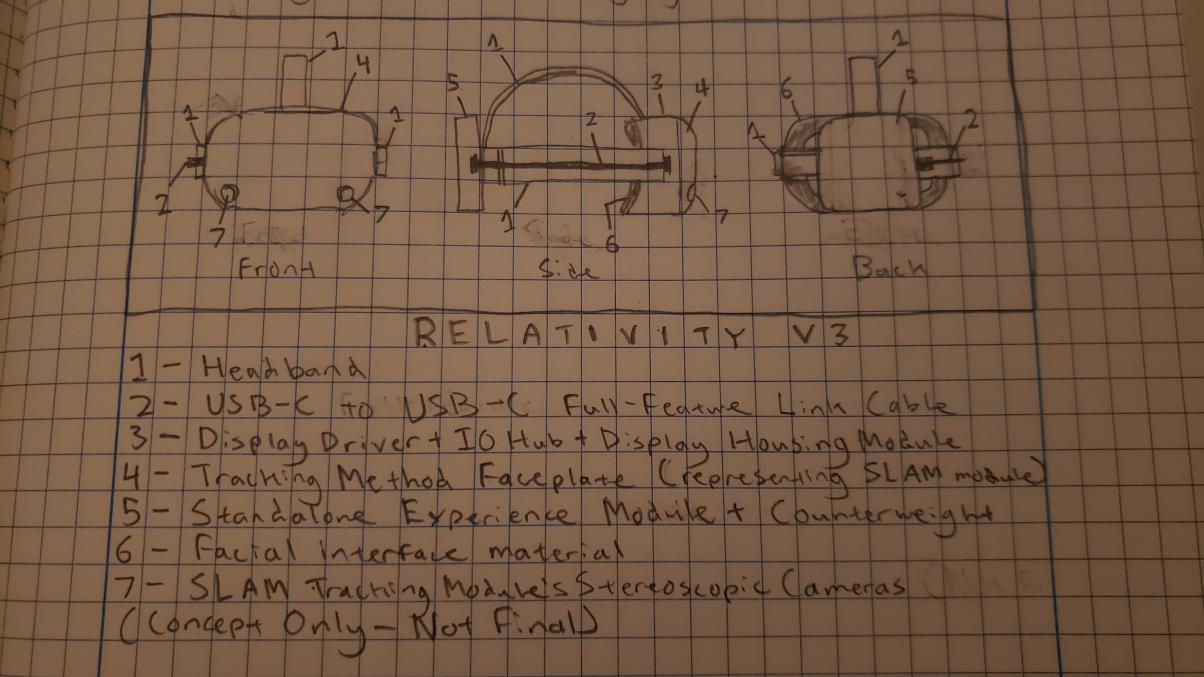 1 4 1 1 2 7 7
1 5 3 4 2 1 6 7
1 6 5 1 2
Front Side Back
RELATIVITY V3
1 - Headband
2 - USB-C to USB-C Full-Feature Link Cable
3 - Display Driver + IO Hub + Display Housing Module
4 - Tracking Method Faceplate (representing SLAM module)
5 - Standalone Experience Module + Counterweight
6 - Facial interface material
7 - SLAM Tracking Module's Stereoscopic Cameras
(Concept Only - Not Final)